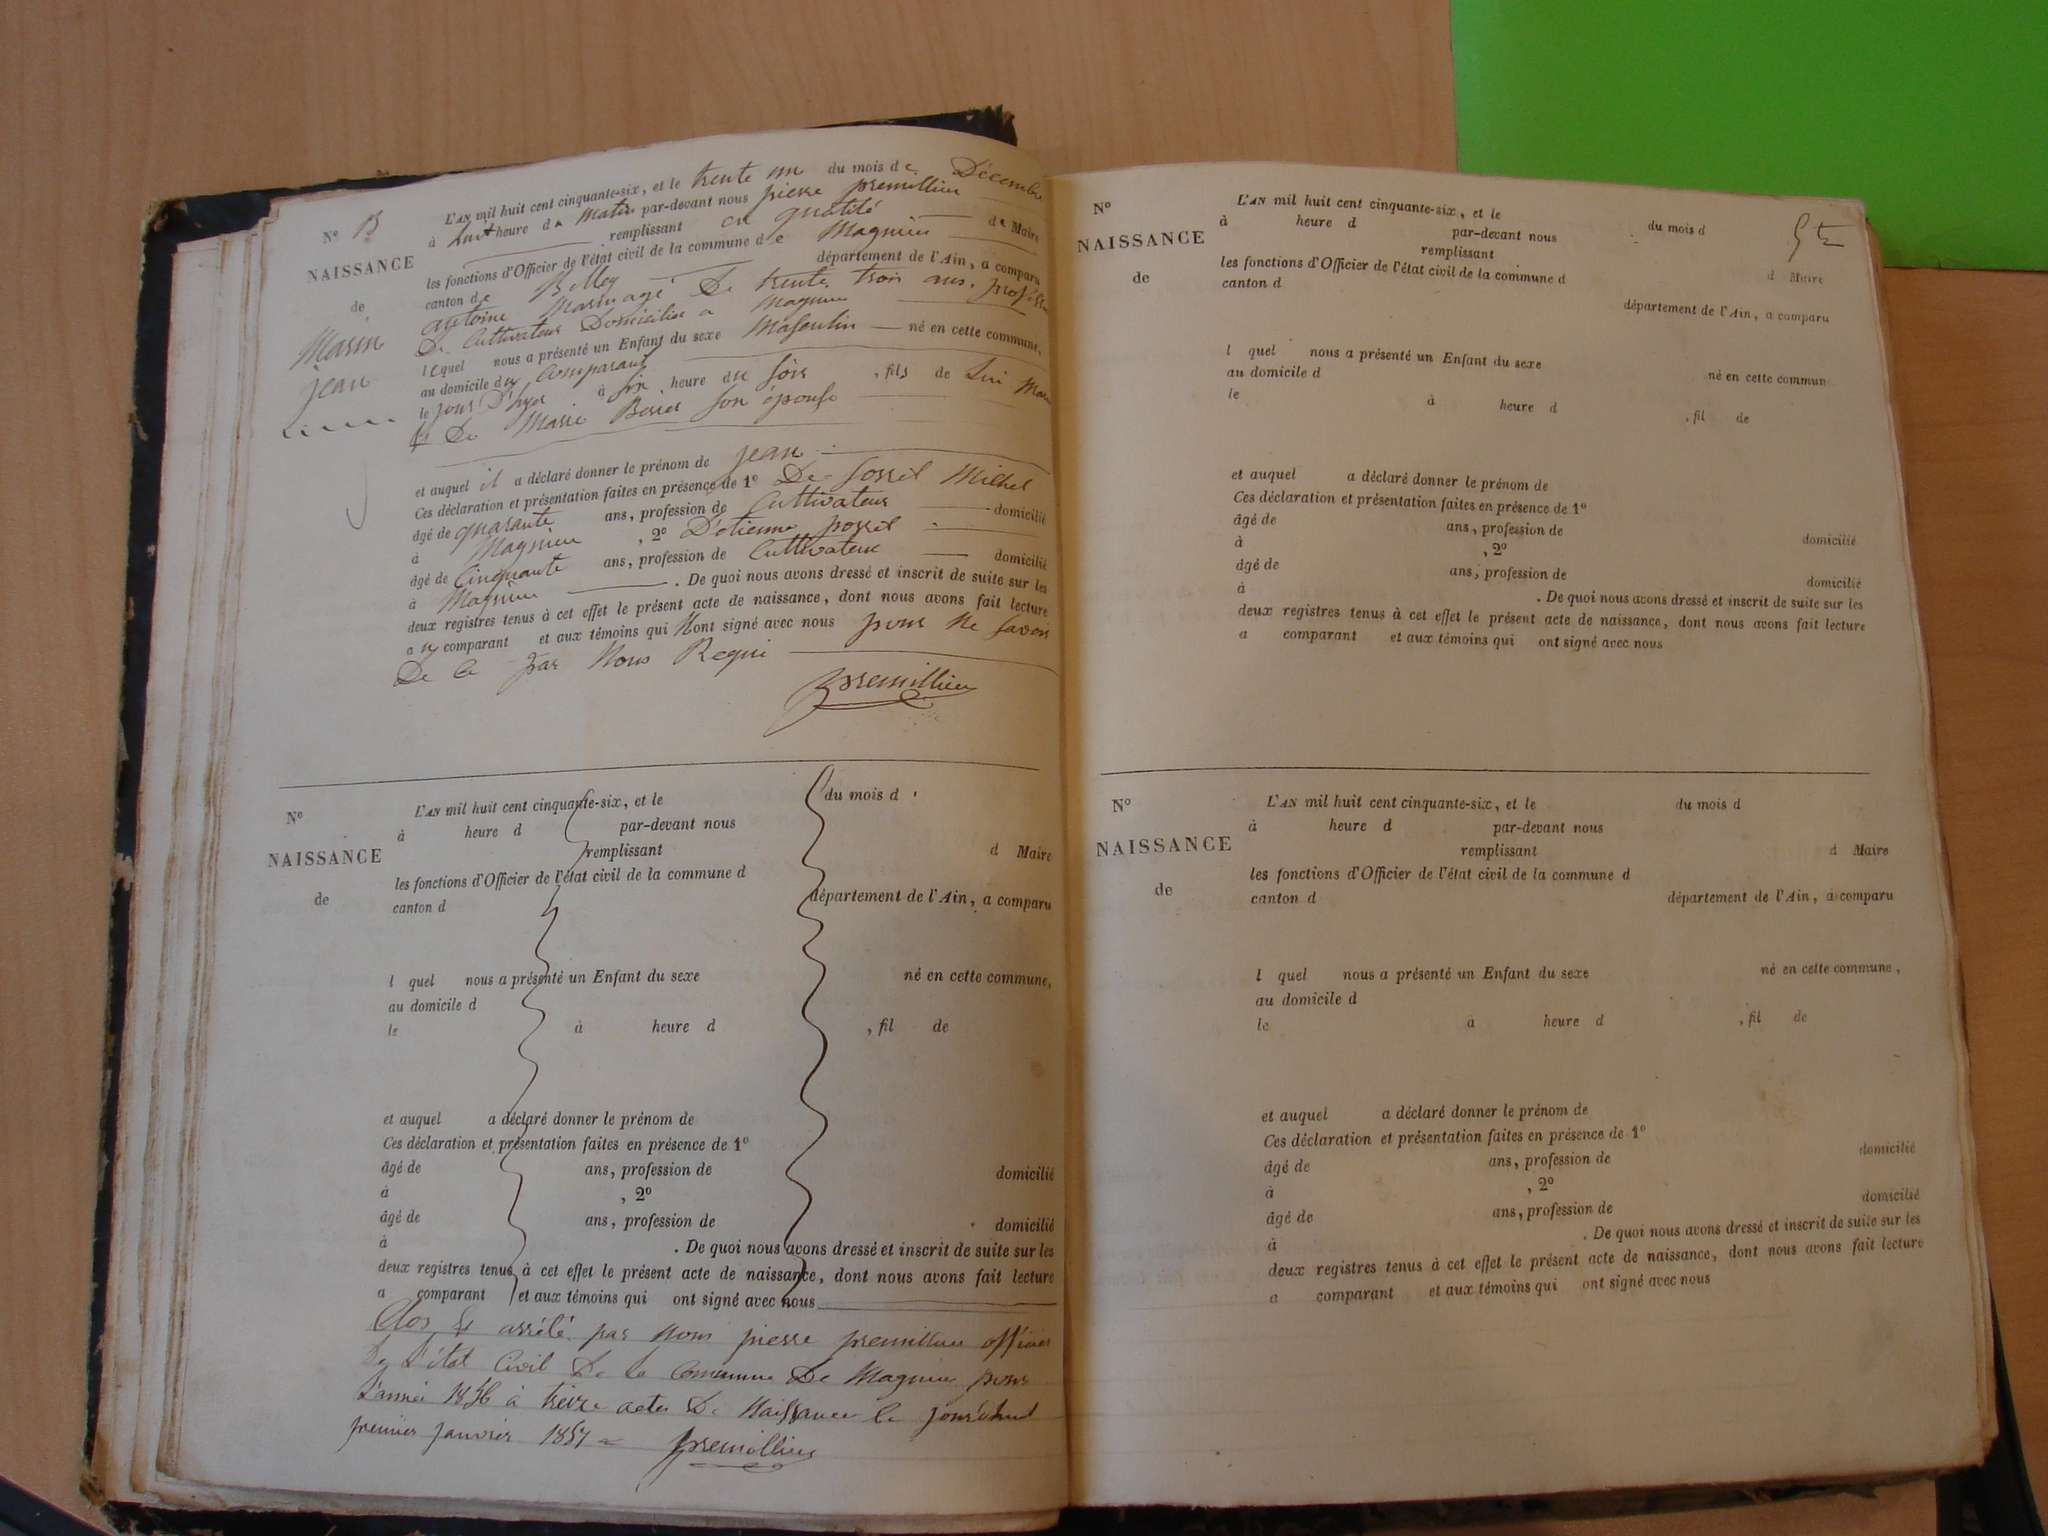 L'AN mil huit cent cinquante-six, et le trente un du mois de Décembre
N° 13 à huit heure du Matin par-devant nous pierre premillieu
remplissant en qualité de Maire
NAISSANCE les fonctions d'Officier de l'état civil de la commune de Magnieu
canton de Belley département de l'Ain, a comparu
de antoine Marin agé De trente trois ans, profession
De Cultivateur Domicilié a Magnieu
Marin lequel nous a présenté un Enfant du sexe Masculin né en cette commune,
jean au domicile du Comparant
le jour D'hyer à six heure du soir, fils de lui Marin
et De Marie son épouse
et auquel il a déclaré donner le prénom de jean
Ces déclaration et présentation faites en présence de 1° De Michel
âgé de quarante ans, profession de Cultivateur domicilié
à Magnieu, 2° D'étienne
âgé de Cinquante ans, profession de Cultivateur domicilié
à Magnieu. De quoi nous avons dressé et inscrit de suite sur les
deux registres tenus à cet effet le présent acte de naissance, dont nous avons fait lecture
au comparant et aux témoins qui n'ont signé avec nous pour ne savoir
De ce par Nous Requi
premillieu
L'AN mil huit cent cinquante-six, et le du mois d
N° à heure d par-devant nous
remplissant d Maire
NAISSANCE les fonctions d'Officier de l'état civil de la commune d
de canton d département de l'Ain, a comparu
l quel nous a présenté un Enfant du sexe né en cette commune,
au domicile d
le à heure d , fil de
et auquel a déclaré donner le prénom de
Ces déclaration et présentation faites en présence de 1°
âgé de ans, profession de domicilié
à , 2°
âgé de ans, profession de domicilié
à . De quoi nous avons dressé et inscrit de suite sur les
deux registres tenus à cet effet le présent acte de naissance, dont nous avons fait lecture
a comparant et aux témoins qui ont signé avec nous
Clos et arrété par Nous pierre premillieu officier
De L'état Civil De la Commune De Magnieu pour
L'année 1856 à treize actes De Naissance le jourd'hui
premier janvier 1857 premillieu
N° L'AN mil huit cent cinquante-six, et le du mois d
à heure d par-devant nous
NAISSANCE remplissant d Maire
de les fonctions d'Officier de l'état civil de la commune d
canton d département de l'Ain, a comparu
l quel nous a présenté un Enfant du sexe né en cette commun
au domicile d
le à heure d , fil de
et auquel a déclaré donner le prénom de
Ces déclaration et présentation faites en présence de 1°
âgé de ans, profession de domicilié
à , 2°
âgé de ans, profession de domicilié
à . De quoi nous avons dressé et inscrit de suite sur les
deux registres tenus à cet effet le présent acte de naissance, dont nous avons fait lecture
a comparant et aux témoins qui ont signé avec nous
N° L'AN mil huit cent cinquante-six, et le du mois d
à heure d par-devant nous
NAISSANCE remplissant d Maire
les fonctions d'Officier de l'état civil de la commune d
de canton d département de l'Ain, a comparu
l quel nous a présenté un Enfant du sexe né en cette commune,
au domicile d
le à heure d , fil de
et auquel a déclaré donner le prénom de
Ces déclaration et présentation faites en présence de 1°
âgé de ans, profession de domicilié
à , 2°
âgé de ans, profession de domicilié
à . De quoi nous avons dressé et inscrit de suite sur les
deux registres tenus à cet effet le présent acte de naissance, dont nous avons fait lecture
a comparant et aux témoins qui ont signé avec nous